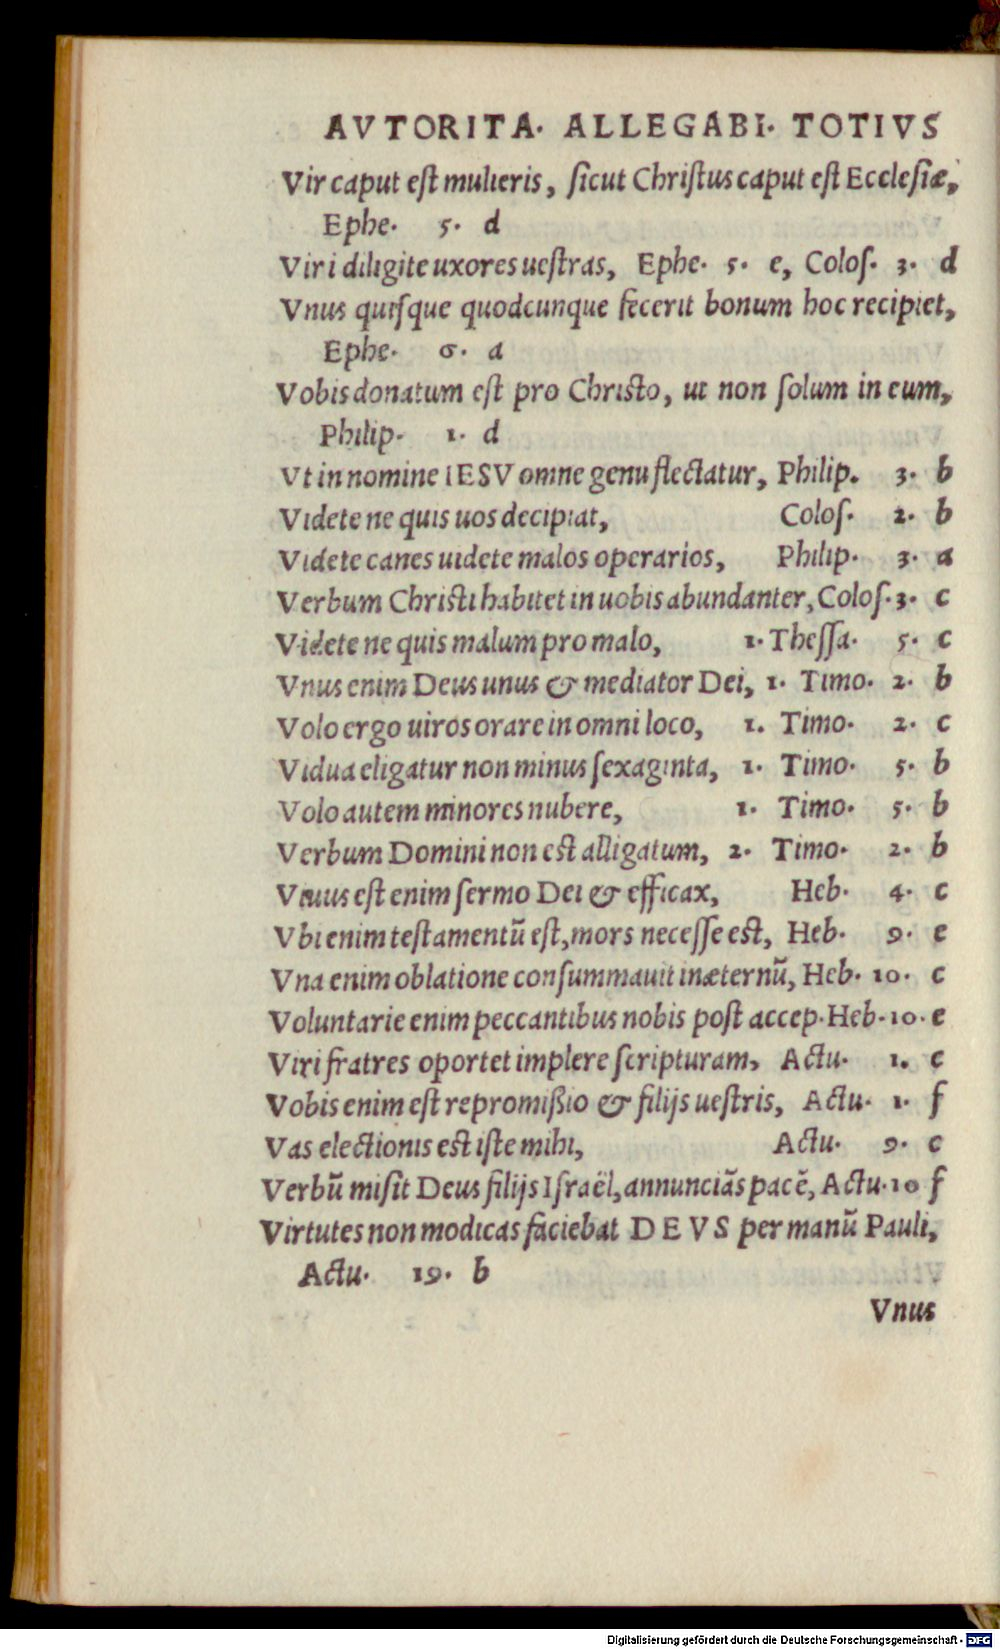 AVTORITA. ALLEGABI. TOTIVS
Vir caput eſt mulieris, ſicut Chriſtus caput eſt Eccleſiæ,
Ephe. 5. d
Viri diligite uxores ueſtras, Ephe. 5. e, Coloſ. 3. d
Vnus quiſque quodcunque fecerit bonum hoc recipiet,
Ephe. 6. a
Vobis donatum eſt pro Chriſto, ut non ſolum in eum,
Philip. 1. d
Vt in nomine IESV omne genu flectatur, Philip. 3. b
Videte ne quis uos decipiat, Coloſ. 2. b
Videte canes uidete malos operarios, Philip. 3. a
Verbum Chriſti habitet in uobis abundanter, Coloſ. 3. c
Videte ne quis malum pro malo, 1. Theſſa. 5. c
Vnus enim Deus unus & mediator Dei, 1. Timo. 2. b
Volo ergo uiros orare in omni loco, 1. Timo. 2. c
Vidua eligatur non minus ſexaginta, 1. Timo. 5. b
Volo autem minores nubere, 1. Timo. 5. b
Verbum Domini non eſt alligatum, 2. Timo. 2. b
Viuus eſt enim ſermo Dei & efficax, Heb. 4. c
Vbi enim teſtamentū eſt, mors neceſſe eſt, Heb. 9. e
Vna enim oblatione conſummauit inæternū, Heb. 10. c
Voluntarie enim peccantibus nobis poſt accep. Heb. 10. e
Viri fratres oportet implere ſcripturam, Actu. 1. c
Vobis enim eſt repromiſsio & filijs ueſtris, Actu. 1. f
Vas electionis eſt iſte mihi, Actu. 9. c
Verbū miſit Deus filijs Iſraël, annunciās pacē, Actu. 10 f
Virtutes non modicas faciebat DEVS per manū Pauli,
Actu. 19. b
Vnus
Digitalisierung gefördert durch die Deutsche Forschungsgemeinschaft - DFG